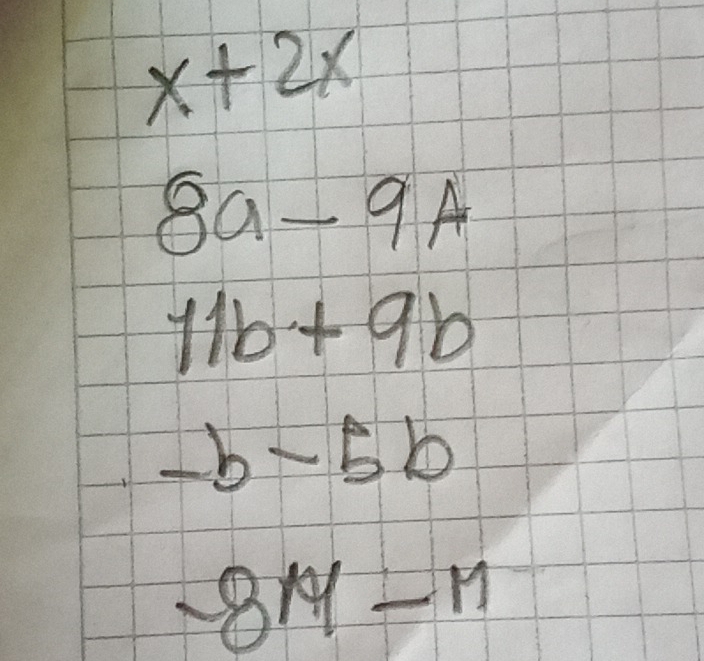 x+2x
8a-9A
11b+9b
-b-5b
-8M-M